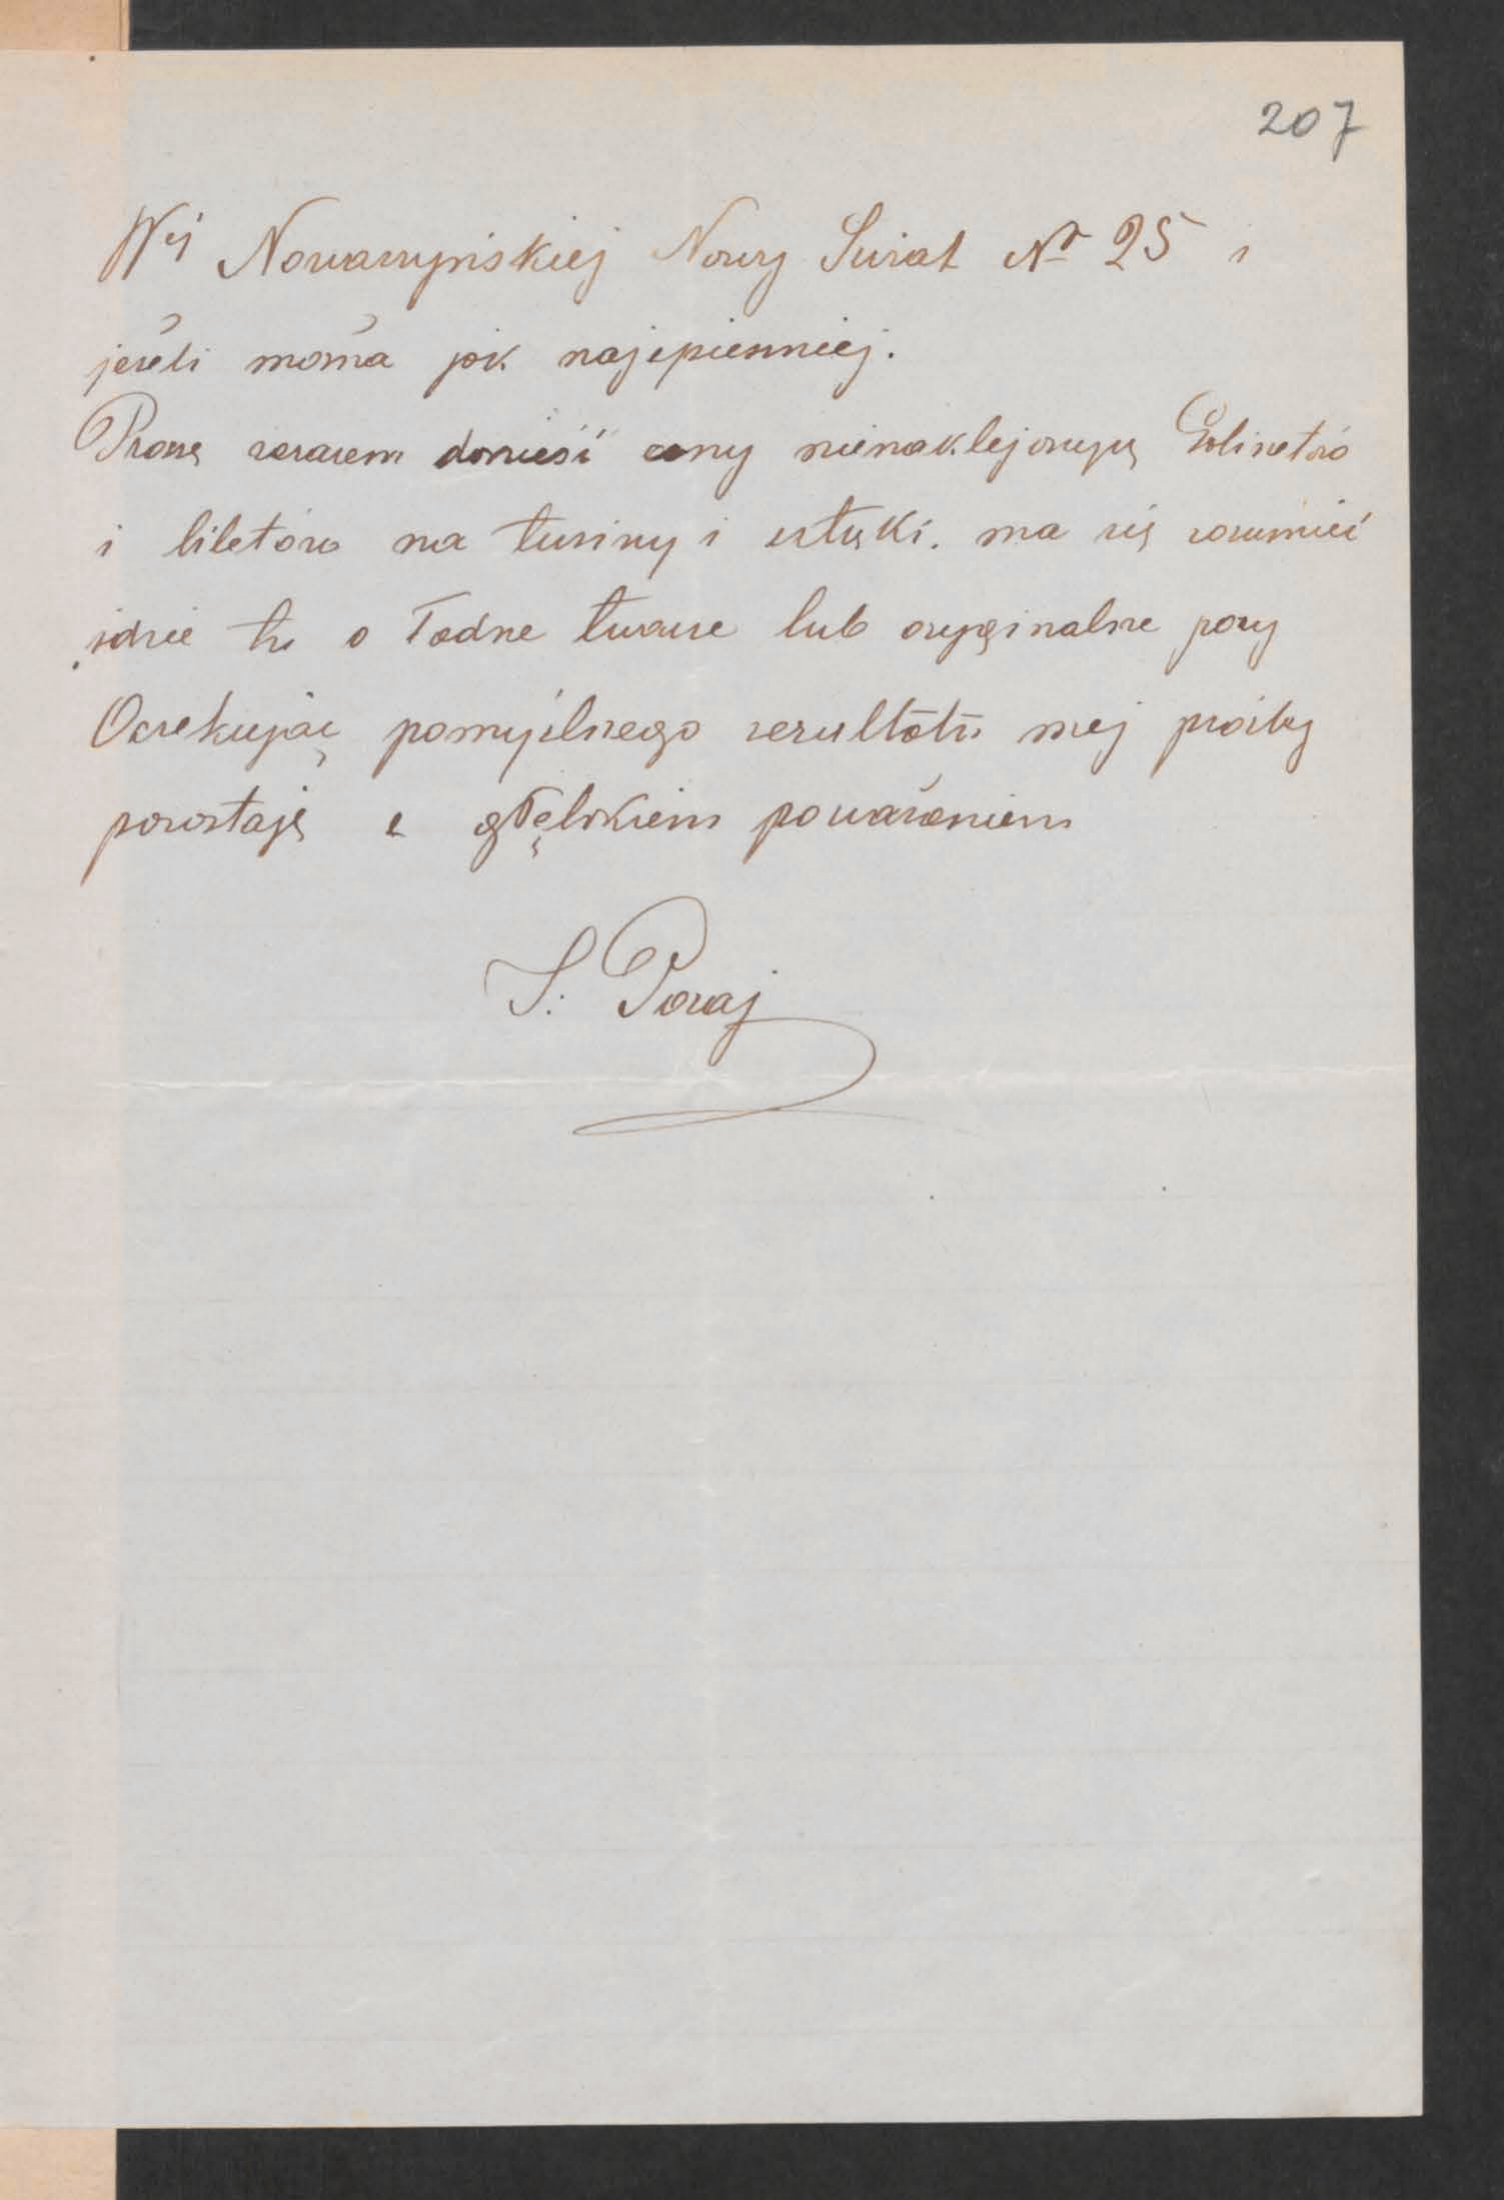 207
Wej Nowaczyńskiej Nowy Świat № 25 i
jeżeli można jak najspieszniej.
Proszę zarazem donieść ceny nienaklejonych
i biletów na tuziny i sztuki. ma się rozumieć
idzie tu o ładne twarze lub oryginalne pozy
Oczekując pomyślnego rezultatu mej prośby
pozostaję z głębokiem poważaniem
S. Poraj